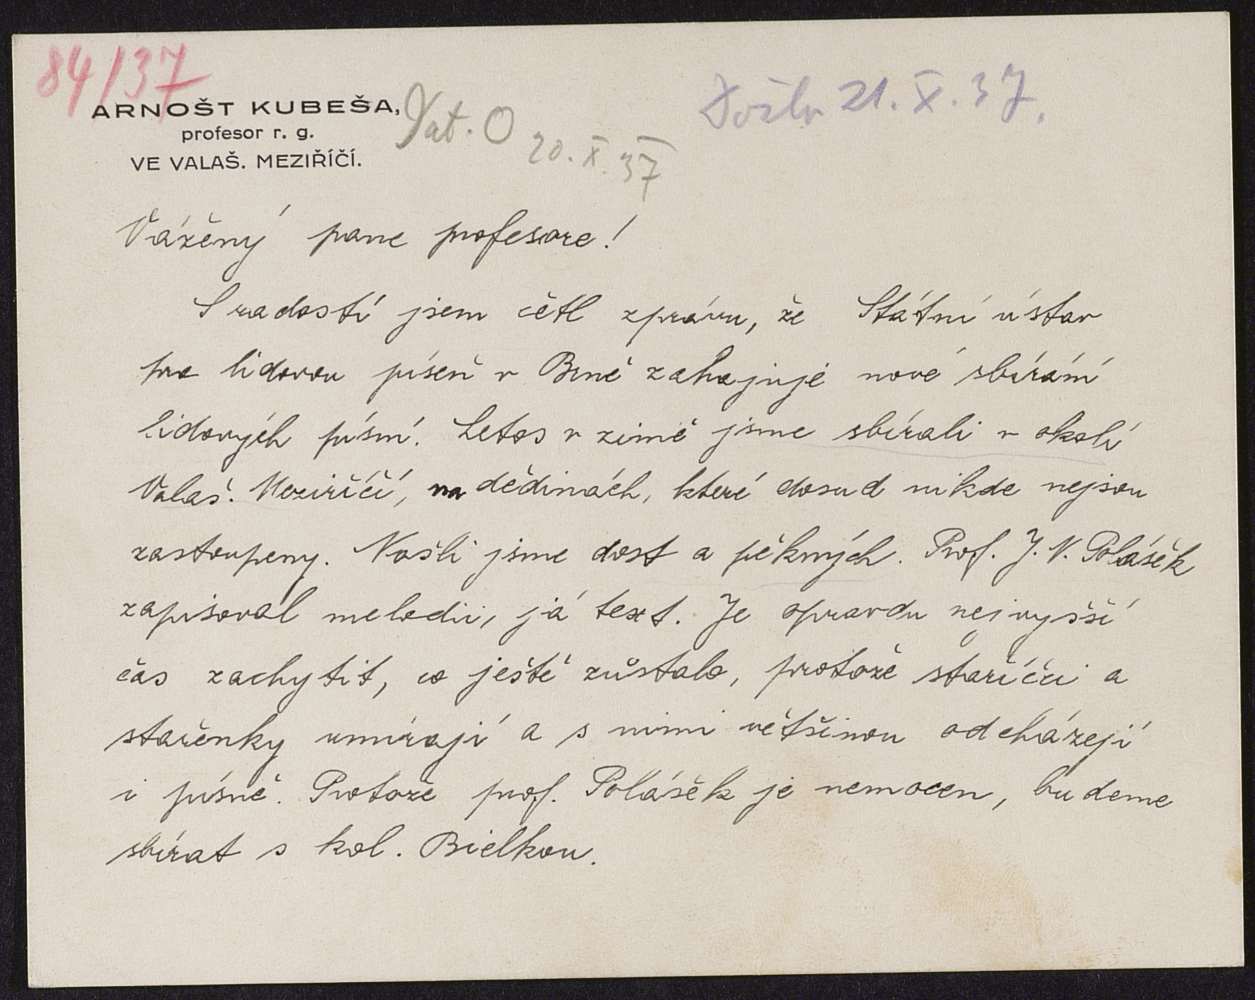 84/37
ARNOŠT KUBEŠA,
profesor r. g.
VE VALAŠ. MEZIŘÍČÍ.
Dat. O 20. X. 37
Došlo 21. X. 37.
Vážený pane profesore!
S radostí jsem četl zprávu, že Státní ústav
pro lidovou píseň v Brně zahajuje nové sbírání
lidových písní. Letos v zimě jsme sbírali v okolí
Valaš. Meziříčí, na dědinách, které dosud nikde nejsou
zastoupeny. Našli jsme dost a pěkných. Prof. J. N. Polášek
zapisoval melodii, já text. Je opravdu nejvyšší
čas zachytit, co ještě zůstalo, protože staříčci a
stařenky umírají a s nimi většinou odcházejí
i písně. Protože prof. Polášek je nemocen, budeme
sbírat s kol. Bielkou.